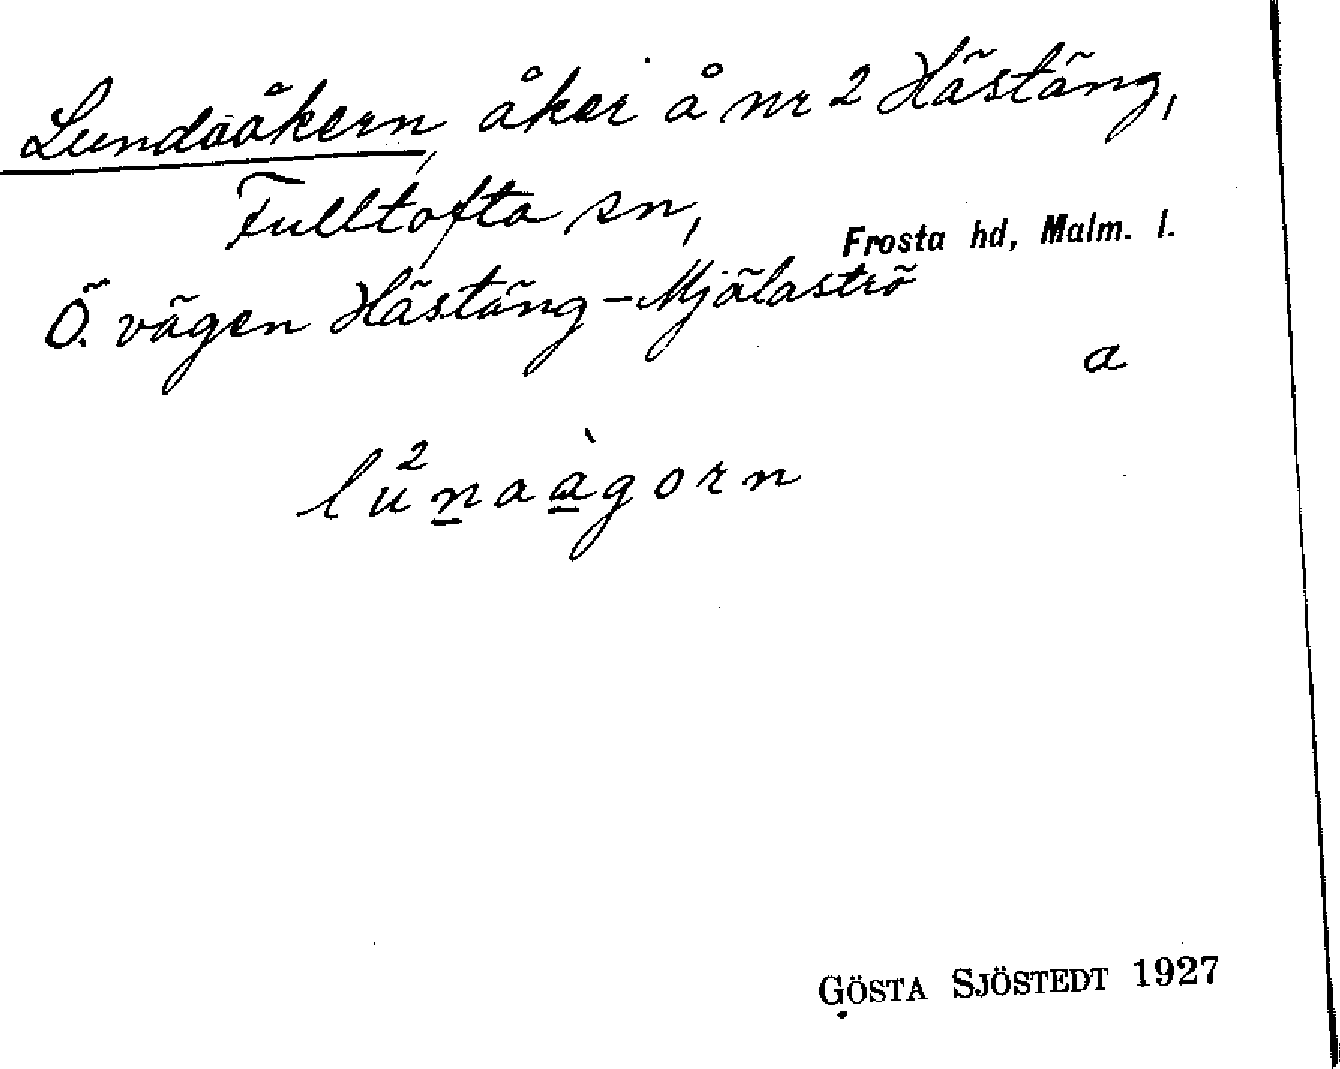 Lundaåkern, åker å nr 2 Hästäng,
Fulltofta sn,
Frosta hd, Malm. l.
Ö. vägen Hästäng-Mjälaströ
a
lu²n̲aà̲gorn
GÖSTA SJÖSTEDT 1927